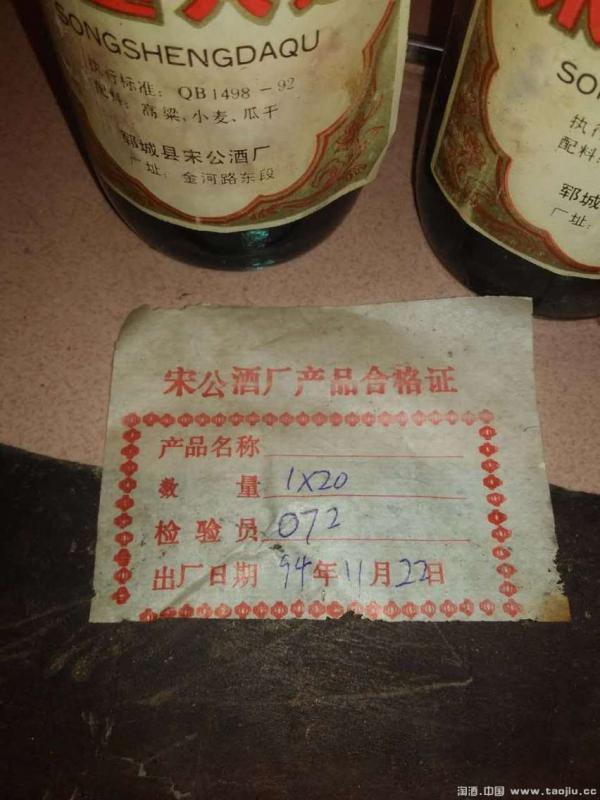 SONGSHENGDAQU
执行标准: QB1498-92
配料: 高粱、小麦、瓜干
郓城县宋公酒厂
厂址: 金河路东段
SO
执行
配料:
郓城
厂址:
宋公酒厂产品合格证
产品名称
数 量 1X20
检验员 072
出厂日期 94年11月22日
淘酒.中国 www.taojiu.cc